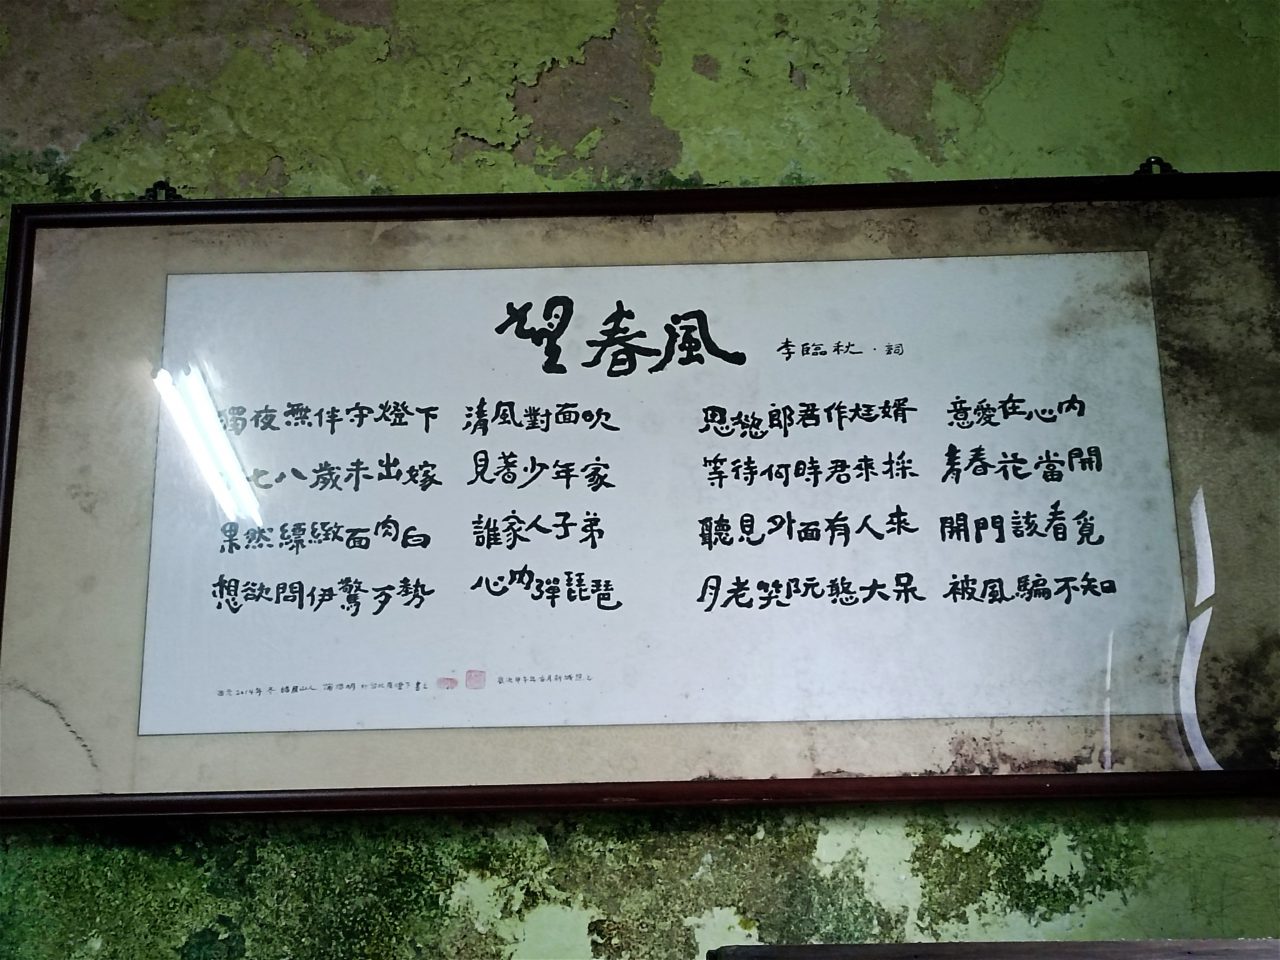 望春風 李臨秋・詞
獨夜無伴守燈下 清風對面吹
七八歲未出嫁 見著少年家
果然縹緻面肉白 誰家人子弟
想欲問伊驚歹勢 心內彈琵琶
思慾郎君作尪婿 意愛在心內
等待何時君來採 青春花當開
聽見外面有人來 開門該看覓
月老笑阮憨大呆 被風騙不知
西元2014年冬